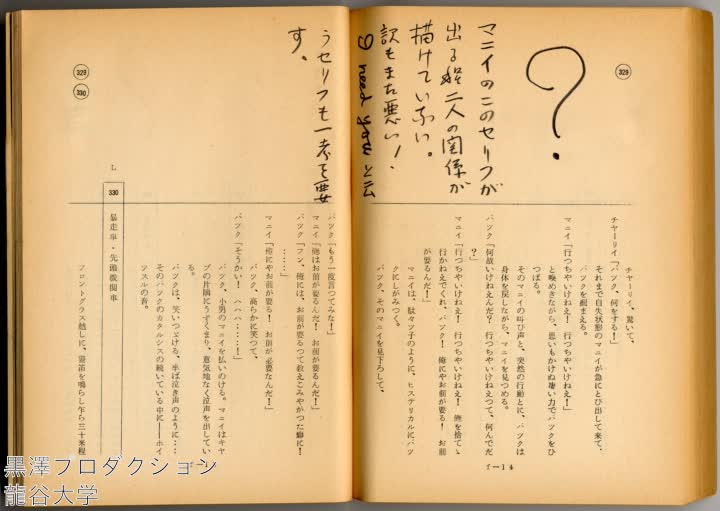 329
?
マニイのこのセリフが
出る程二人の関係が
描けていない。
訳もまた悪い！
I need you と云
うセリフも一考を要
す。
チャーリイ、驚いて、
チャーリイ「バック、何をする！」
それまで自失状態のマニイが急にとび出して来て、
バックを掴まえる。
マニイ「行つちやいけねえ！　行つちやいけねえ！」
と喚めきながら、思いもかけぬ凄い力でバックをひ
つぱる。
そのマニイの叫び声と、突然の行動とに、バックは
身体を戻しながら、マニイを見つめる。
バック「何故いけねえんだ？　行つちやいけねえつて、何んでだ
？」
マニイ「行つちやいけねえ！　行つちやいけねえ！　俺を捨てゝ
行かねえでくれ、バック！　俺にやお前が要る！　お前
が要るんだ！」
マニイは、駄々ツ子のように、ヒステリカルにバツ
クにしがみつく。
バック、そのマニイを見下ろして、
f－14
329
330
バック「もう一度言つてみな！」
マニイ「俺はお前が要るんだ！　お前が要るんだ！」
バック「フン、俺には、お前が要るつて教えこみやがつた癖に！
……」
マニイ「俺にやお前が要る！　お前が必要なんだ！」
バック、高らかに笑つて、
バック「そうかい！　ハハハ……！」
バック、小男のマニイを払いのける。マニイはキヤ
ブの片隅にうずくまり、意気地なく泣声を出してい
る。
バックは、笑いつゞける、半ば泣き声のように…
そのバックのカタルシスの続いている中に――ホイ
ツスルの音。
L
330　暴走車・先頭機関車
フロントグラス越しに、霧笛を鳴らし乍ら三十米程
黒澤プロダクション
龍谷大学